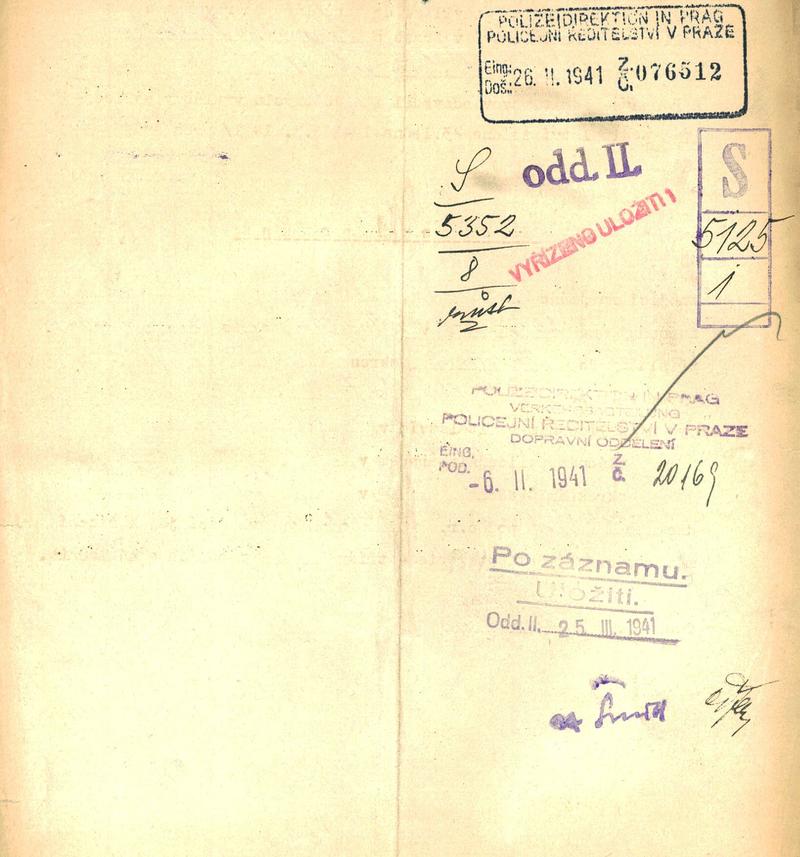 POLIZEIDIREKTION IN PRAG
POLICEJNÍ ŘEDITELSTVÍ V PRAZE
Eing.: 26. II. 1941 Z. 076512
Doš.: Č.
odd. II.
S
5352
8
S
5125
1
VYŘÍZENO ULOŽITI 1
POLIZEIDIREKTION IN PRAG
VERKEHRSABTEILUNG
POLICEJNÍ ŘEDITELSTVÍ V PRAZE
DOPRAVNÍ ODDĚLENÍ
EING. Z.
POD. -6. II. 1941 Č. 20169
Po záznamu.
Uložiti.
Odd. II. 25. III. 1941